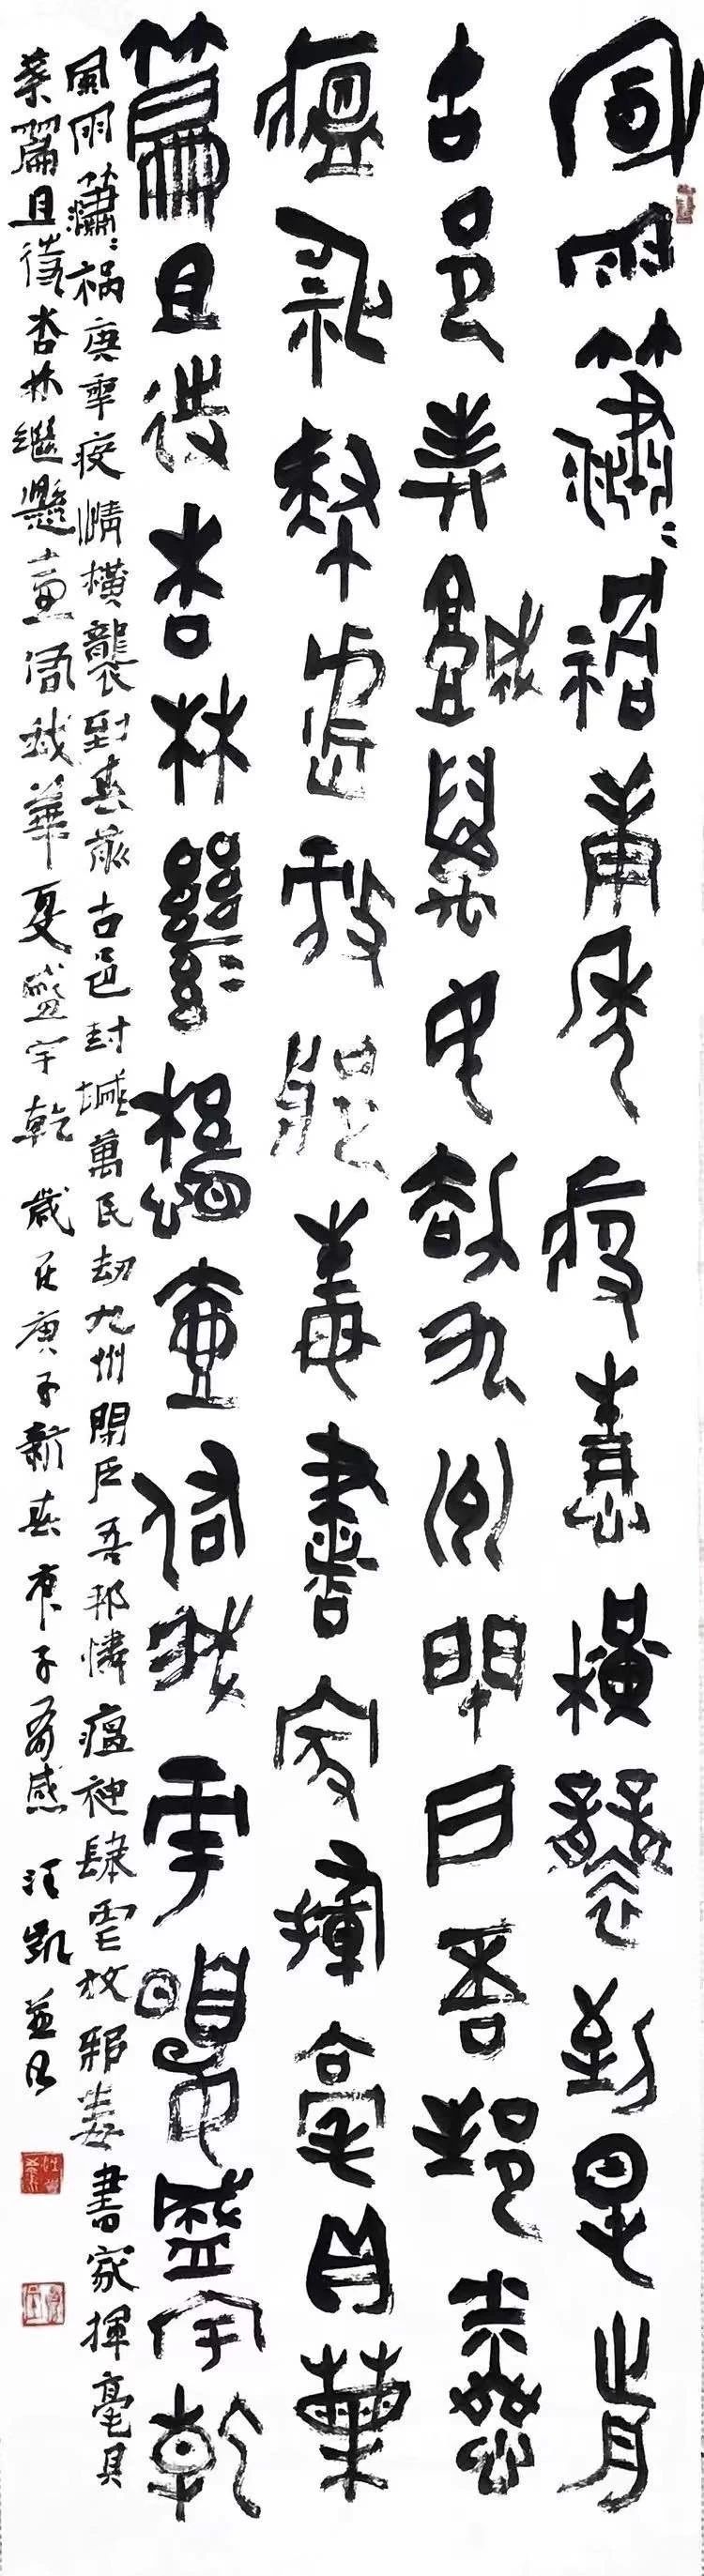 風雨瀟〻禍庚年疫情橫襲到春前
古邑封城萬民劫九州閉戶吾邦憐
瘟神肆虐放邪毒書家揮毫具葉
篇且待杏林繼懸壺佑我華夏盛宇乾
風雨瀟〻禍庚年疫情橫襲到春前古邑封城萬民劫九州閉戶吾邦憐瘟神肆虐放邪毒書家揮毫具
葉篇且待杏林繼懸壺佑我華夏盛宇乾 歲在庚子新春庚子有感 汪凱並句